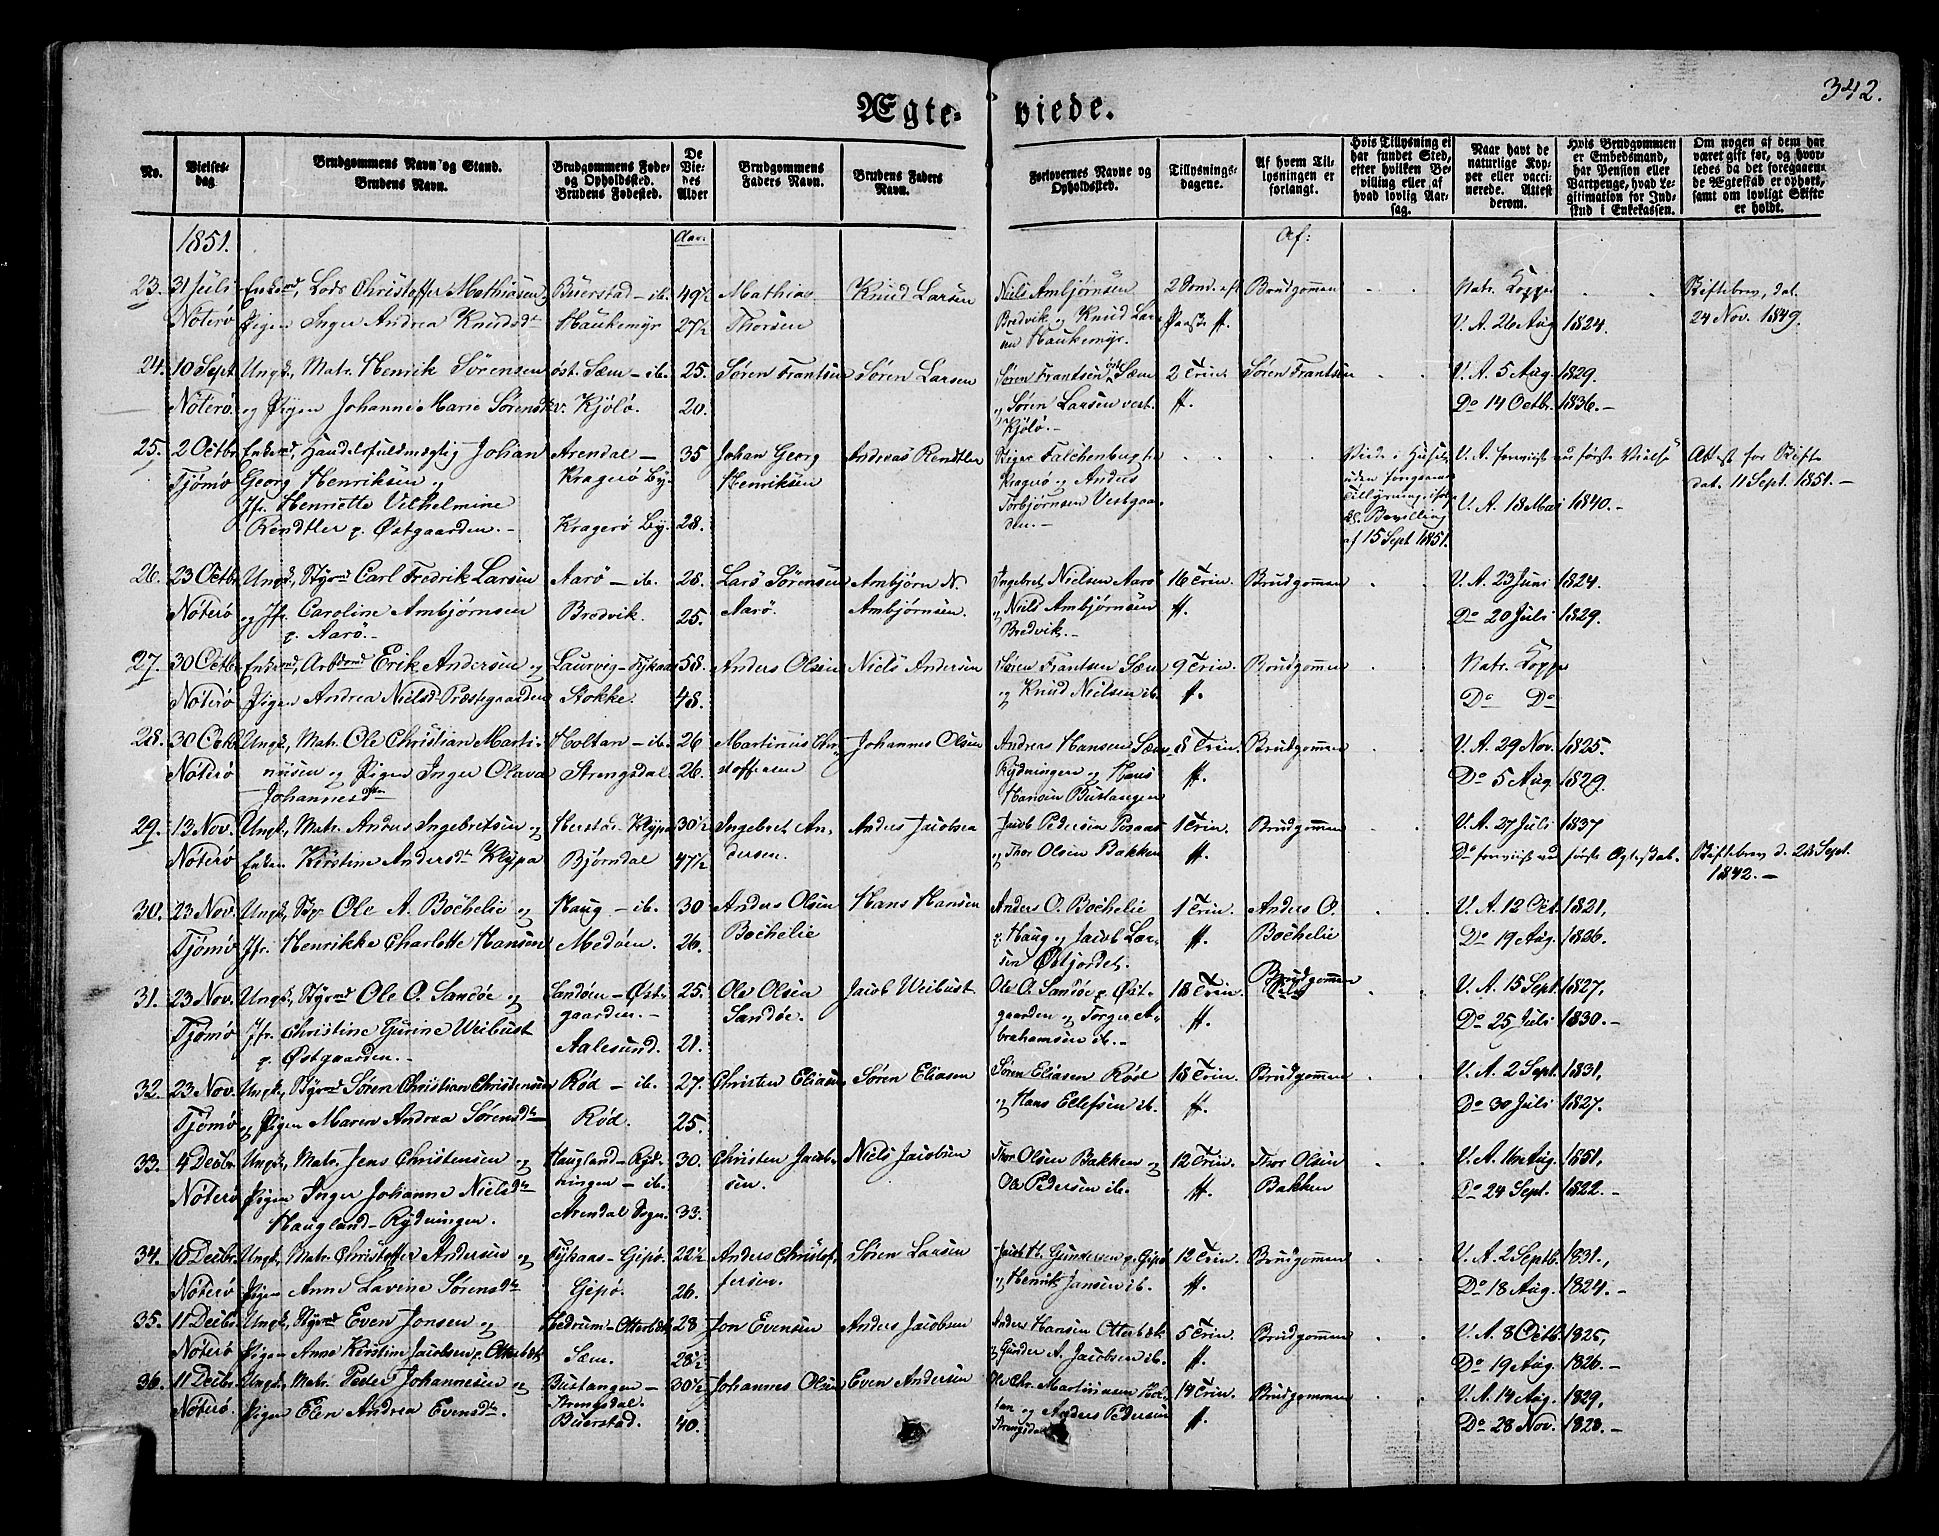 342.
Ægteviede.
No.
Vielsesdag.
Brudgommens Navn og Stand.
Brudens Navn.
Brudgommens Føde-
og Opholdssted.
Brudens Fødested.
De
Vie-
des
Alder
Brudgommens
Faders Navn.
Brudens Faders
Navn.
Forlovernes Navne og
Opholdssted.
Tillysnings-
dagene.
Af hvem Til-
lysningen er
forlangt.
Hvis Tillysning ei
har fundet Sted,
efter hvilken Be-
villing eller af
hvad lovlig Aar-
sag.
Naar havt de
naturlige Kop-
per eller vacci-
nerede. Attest
derom.
Hvis Brudgommen
er Embedsmand,
har Pension eller
Vartpenge, hvad Le-
gitimation for Ind-
skud i Enkekassen.
Om nogen af dem har
været gift før, og hvor-
ledes da det foregaaen-
de Ægteskab er ophørt,
samt om lovligt Skifte
er holdt.
1851.
Aar.
Af:
23. 31 Juli Enkemd, Lods Christoffer Mathiasen Buerstad – ib. 49½ Mathias Knud Larsen Niels Ambjørnsen 2 Sønd. eft. Brudgommen Natr. Kopper Skiftebrev, dat.
Nøterø Pigen Inger Andrea Knudsdtr Haukemyr 27½ Thorsen Bredvik og Knud Lar- Paaske ff. V. A. 26 Aug 1824. 24 Nov. 1849.
sen Haukemyr.
24. 10 Sept Ungk., Matr. Henrik Sørensen øst. Sæm – ib. 25. Søren Frantsen Søren Larsen Søren Frantsen øst. Sæm 2 Trin. Søren Frantsen V. A. 5 Aug. 1829.
Nøterø og Pigen Johanne Marie Sørensdtr v. Kjølø. 20. og Søren Larsen vest. ff. Do 14 Octbr. 1836. –
Kjölö. –
25. 2 Octbr Enkemd, Handelsfuldmægtig Johan Arendal – 35 Johan Georg Andreas Rendtler Falchenberg fr. Viede i Huset V. A. første Vielse Attest for Skifte
Tjømø Georg Henriksen og Kragerø By. Henriksen Kragerø og Anders uden foregaaende dat. 11 Sept. 1851. –
Jfr. Henriette Vilhelmine Torbjørnsen Vestgaar- Tillysning, ifølge V. A. 18 Mai 1840. –
Rendtler p. Østgaarden. – Kragerø By. 28. den. – Bevilling
af 15 Sept 1851.
26. 23 Octbr Ungk., Styrmd Carl Fredrik Larsen Aarø – ib. 28. Lars Sørensen Ambjørn N. Ingebret Nielsen Aarø 16 Trin. Brudgommen V. A. 23 Juni 1824.
Nøterø og Jfr. Caroline Ambjørnsen Bredvik. 25. Aarø. Ambjørnsen. og Niels Ambjørnsen ff. Do 20 Juli 1829.
p. Aarø. – Bredvik. –
27. 30 Octbr Enkemd, Arbmd Erik Andersen og Laurvig – 58. Anders Olsen Niels Andersen Søren Frantsen Sæm 9 Trin. Brudgommen Natr. Kopper
Nøterø Pigen Andrea Nielsd Præstegaarden Stokke. 48. og Knud Nielsen ib. ff. Do Do
28. 30 Octb Ungk., Matr. Ole Christian Marti- Holtan – ib. 26 Martinius Chr- Johannes Olsen Andreas Hansen Sæm 8 Trin. Brudgommen V. A. 29 Nov. 1825.
niusen og Pigen Inger Olava Strengsdal. 26. stoffersen Rydningen og Hans ff. Do 5 Aug. 1829.
Johannesdtr Hansen Bustangen
29. 13 Nov. Ungk., Matr. Anders Ingebretsen og Herstad – Klypa 30½ Ingebret An- Anders Jacobsen Jacob Pedersen 1 Trin. Brudgommen V. A. 27 Juli 1837
Nøterø Enken Kirstine Andersdtr Klypa Bjørndal 47½ dersen. og Thor Olsen Bakken ff. Do forevist ved første Ægteskab. Skiftebrev d. 28 Sept.
1842. –
30. 23 Nov. Ungk., Ole A. Bochelie og Haug – ib. 30 Anders Olsen Hans Hansen Anders O. Bochelie 1 Trin. Anders O. V. A. 12 Oct. 1821,
Tjømø Jfr. Henrikke Charlotte Hansen Medöen. 26. Bochelie p. Haug og Jacob Lar- ff. Bochelie Do 19 Aug. 1826.
sen Østjordet.
31. 23 Nov. Ungk., Styrmd Ole O. Sandøe og Sandøen – Øst- 25. Ole Olsen Jacob Weibust Ole O. Sandøe p. Øst- 18 Trin. Brudgommen V. A. 15 Sept 1827,
Tjømø Jfr. Christine Gurine Weibust gaarden. – Sandøe. gaarden og Torger A- ff. Do 25 Juli 1830. –
p. Østgaarden. – Aalesund. 21. brahamsen ib. –
32. 23 Nov. Ungk., Styrmd Søren Christian Christensen Rød – ib. 27. Christen Eliasen Søren Eliasen Søren Eliasen Rød 18 Trin. Brudgommen V. A. 2 Sept. 1831,
Tjømø og Pigen Maren Andrea Sørensdtr Rød. 25. og Hans Ellefsen ib. ff. Do 30 Juli 1827.
33. 4 Decbr. Ungk., Matr. Jens Christensen og Haugland – Ryd- 30. Christen Jacob- Niels Jacobsen Thor Olsen Bakken og 12 Trin. Thor Olsen V. A. 16 Aug. 1851,
Nøterø Pigen Inger Johanne Nielsdtr ningen – ib. sen. Ole Pedersen ib. ff. Bakken Do 24 Sept. 1822. –
Haugland – Rydningen. Arendal Sogn. 33.
34. 10 Decbr. Ungk., Matr. Christoffer Andersen og – Gipø. 22½ Anders Christof- Søren Larsen Jacob H. Gundersen p. Gipø 12 Trin. Brudgommen V. A. 2 Septb. 1831,
Nøterø Pigen Anne Lavine Sørensdtr Gipø. 26. fersen. og Henrik Jansen ib. ff. Do 18 Aug. 1824. –
35. 11 Decbr. Ungk., Styrmd Even Jonsen og Hedrum – Otterbæk 28 Jon Evensen Anders Jacobsen Anders Hansen Otterbæk 5 Trin. Brudgommen V. A. 8 Octb. 1825,
Nøterø Pigen Anne Kirstine Jacobsen p. Otterbæk Sæm. 28½ og Gunder A. Jacobsen ib. ff. Do 19 Aug. 1826. –
36. 11 Decbr. Ungk., Matr. Peder Johannesen og Bustangen – 30½ Johannes Olsen Even Andersen Ole Chr. Martinusen Hol- 14 Trin. Brudgommen V. A. 14 Aug. 1829,
Nøterø. Pigen Elen Andrea Evensdtr. Strengsdal. tan og Anders Pedersen ff. Do 28 Nov. 1828. –
Buerstad. 40. Strengsdal